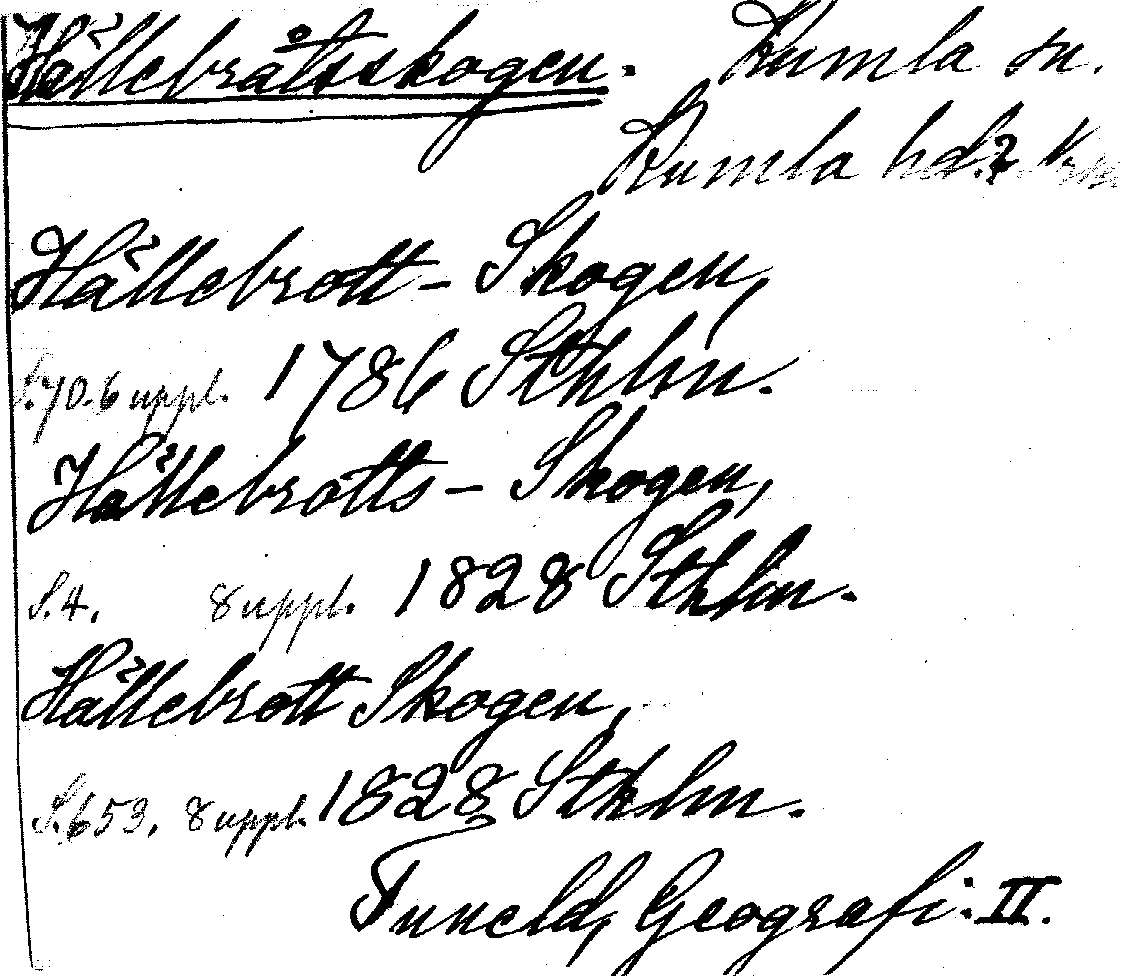 Hällebråtsskogen. Kumla sn.
Kumla hd.
Hällebrott-Skogen,
S. 70. 6 uppl. 1786 Sthlm.
Hällebrotts-Skogen,
S. 4. 8 uppl. 1828 Sthlm.
Hällebrott Skogen,
S. 653. 8 uppl. 1828 Sthlm.
Tuneld, Geografi. II.